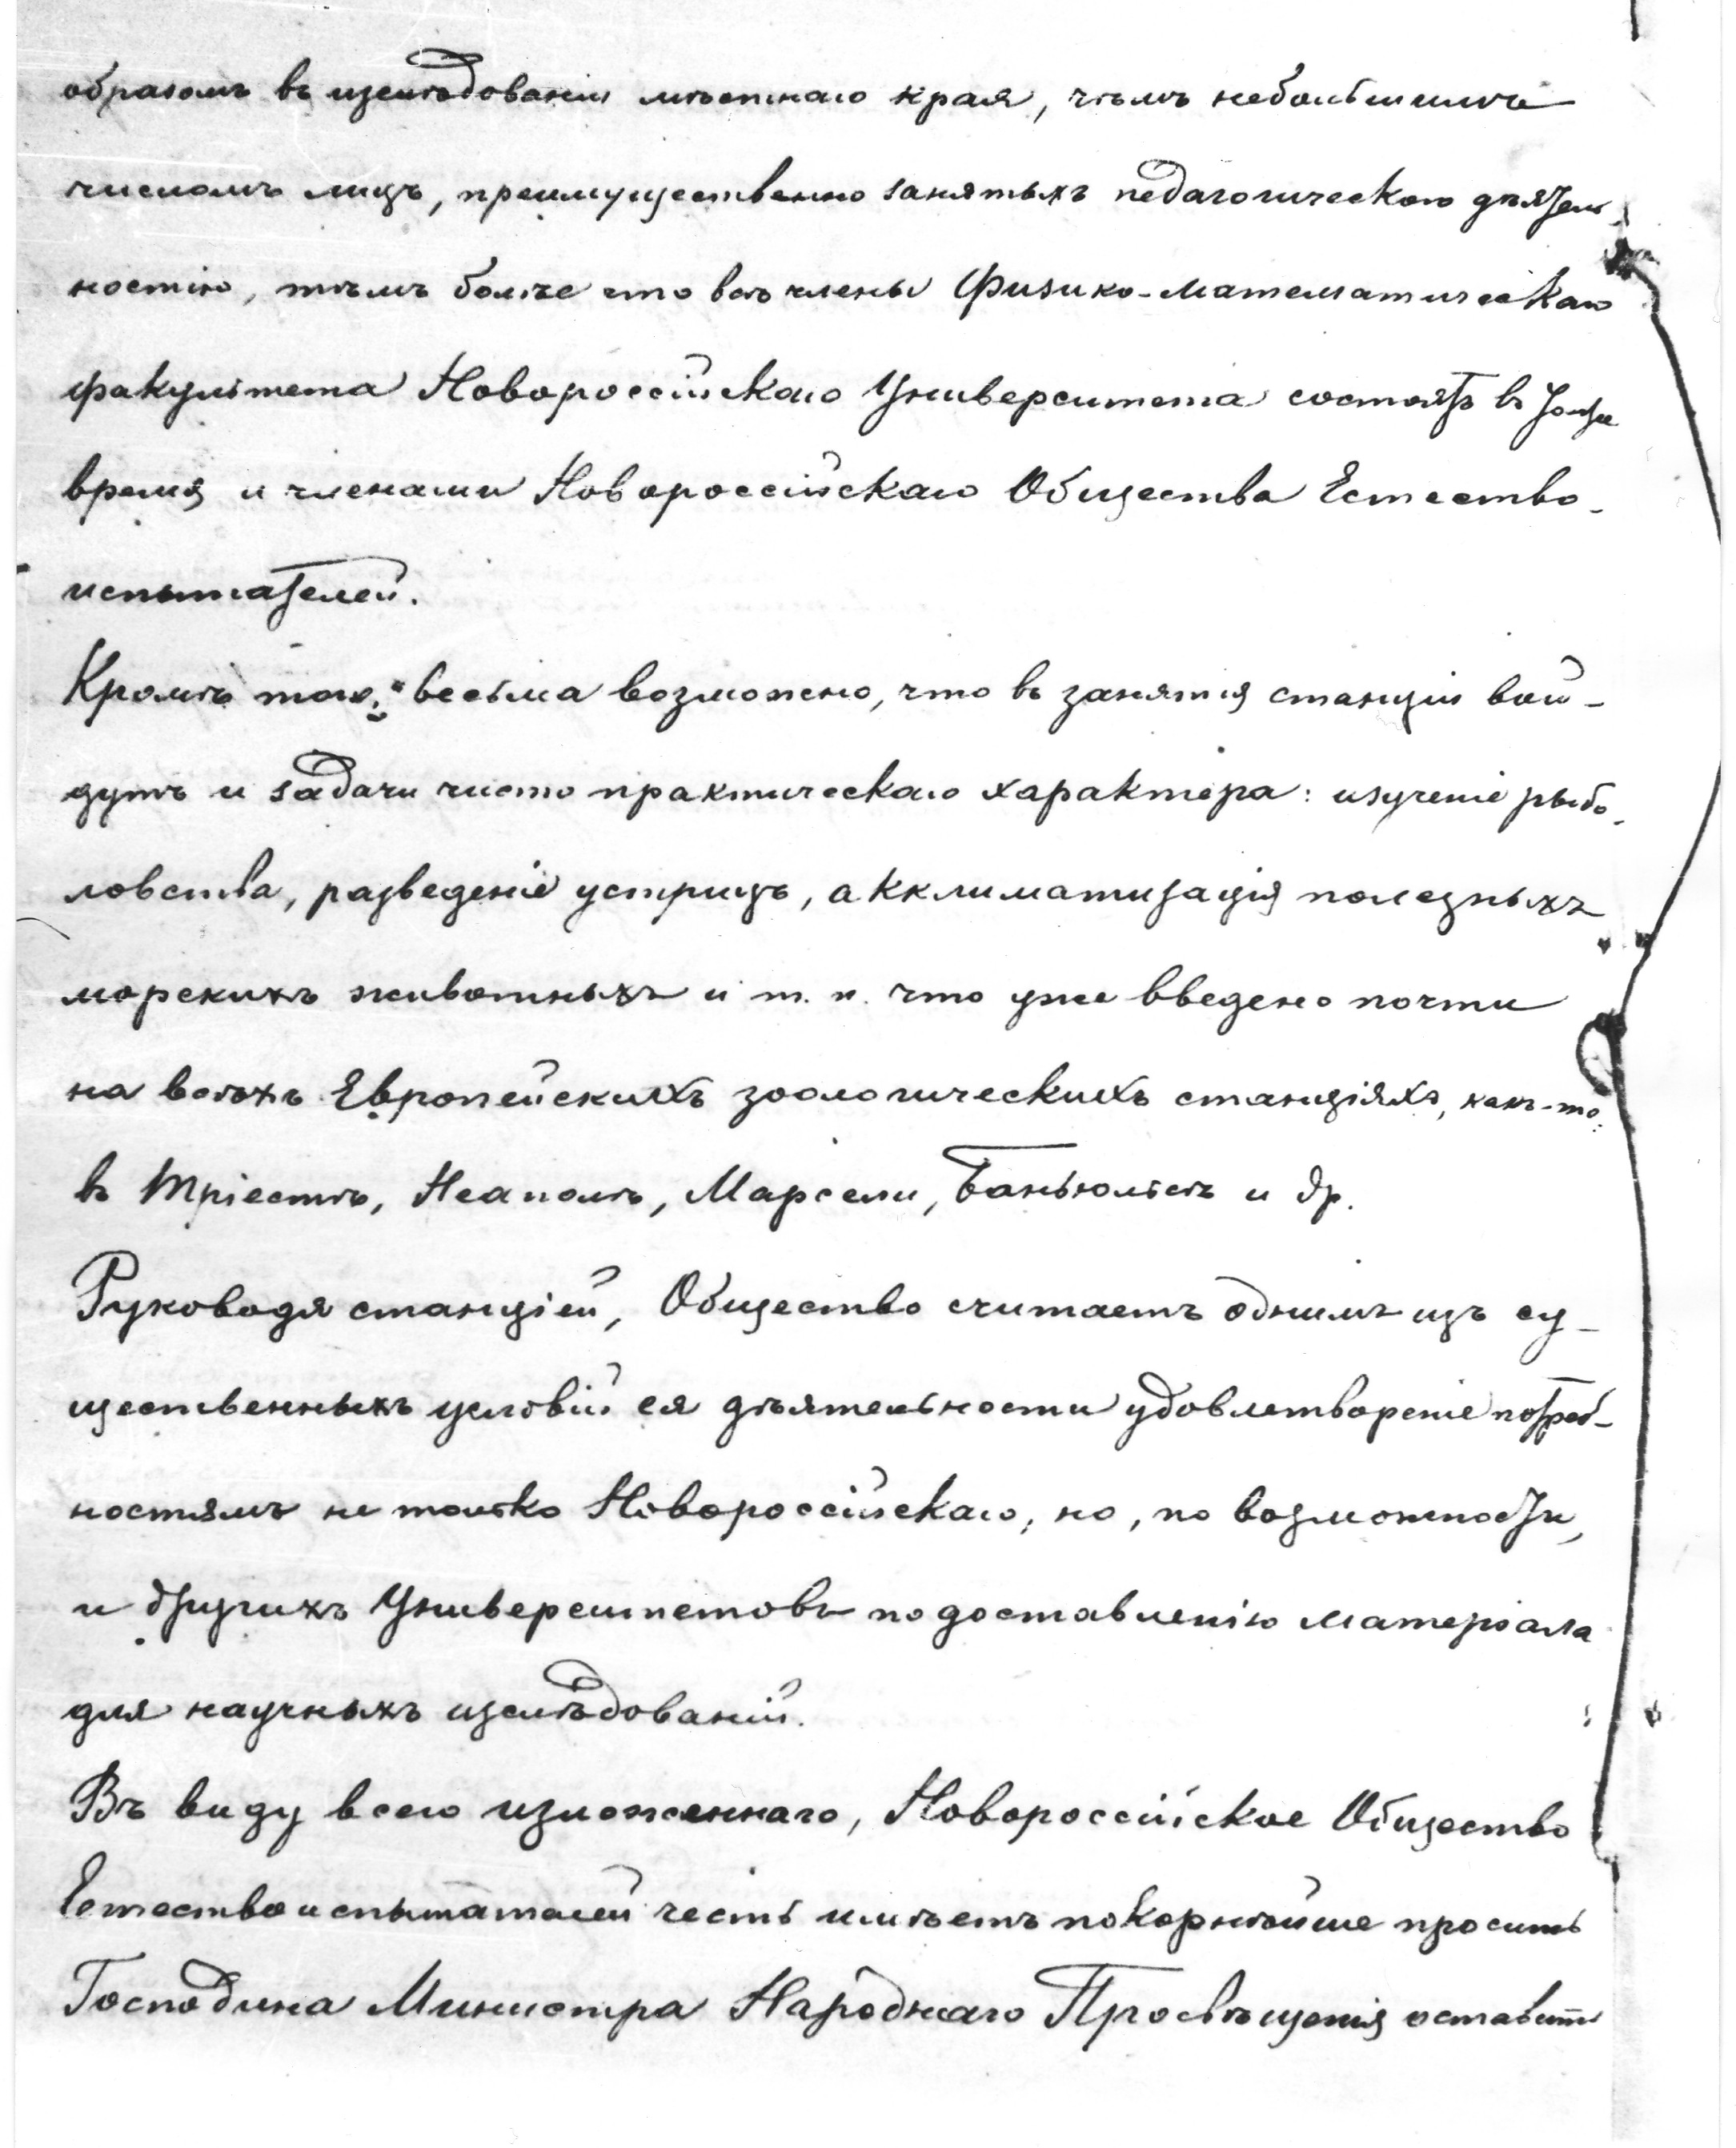 образомъ въ изслѣдованіи мѣстнаго края, чѣмъ небольшимъ
числомъ лицъ, преимущественно занятыхъ педагогическою дѣятель-
ностію, тѣмъ болѣе что всѣ члены Физико-математическаго
факультета Новороссійскаго Университета состоятъ въ тоже
время и членами Новороссійскаго Общества Естество-
испытателей.
Кромѣ того, весьма возможно, что въ занятія станціи вой-
дутъ и задачи чисто практическаго характера: изученіе рыбо-
ловства, разведеніе устрицъ, акклиматизація полезныхъ
морскихъ животныхъ и т. п. что уже введено почти
на всѣхъ Европейскихъ зоологическихъ станціяхъ, какъ-то:
въ Тріестѣ, Неаполѣ, Марсели, Баньюльсѣ и др.
Руководя станціей, Общество считаетъ однимъ изъ су-
щественныхъ условій ея дѣятельности удовлетвореніе потреб-
ностямъ не только Новороссійскаго, но, по возможности,
и другихъ Университетовъ по доставленію матеріала
для научныхъ изслѣдованій.
Въ виду всего изложеннаго, Новороссійское Общество
Естествоиспытателей честь имѣетъ покорнѣйше просить
Господина Министра Народнаго Просвѣщенія оставить